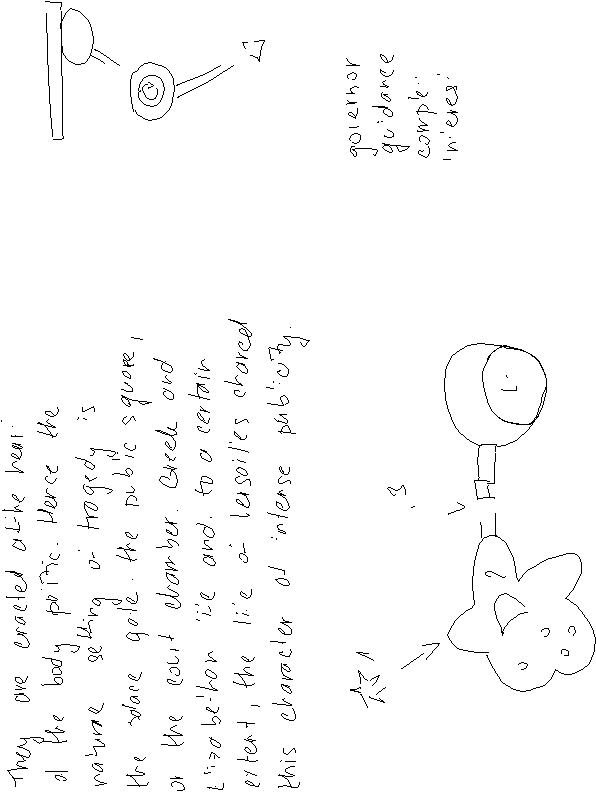 They are enacted at the hear
of the body politic. Hence the
natural setting of tragedy is
the palace gate, the public square,
or the court chamber. Greek and
Elizabethan life and, to a certain
extent, the life of Versailles shared
this character of intense publicity.
governor
guidance
comple
interes